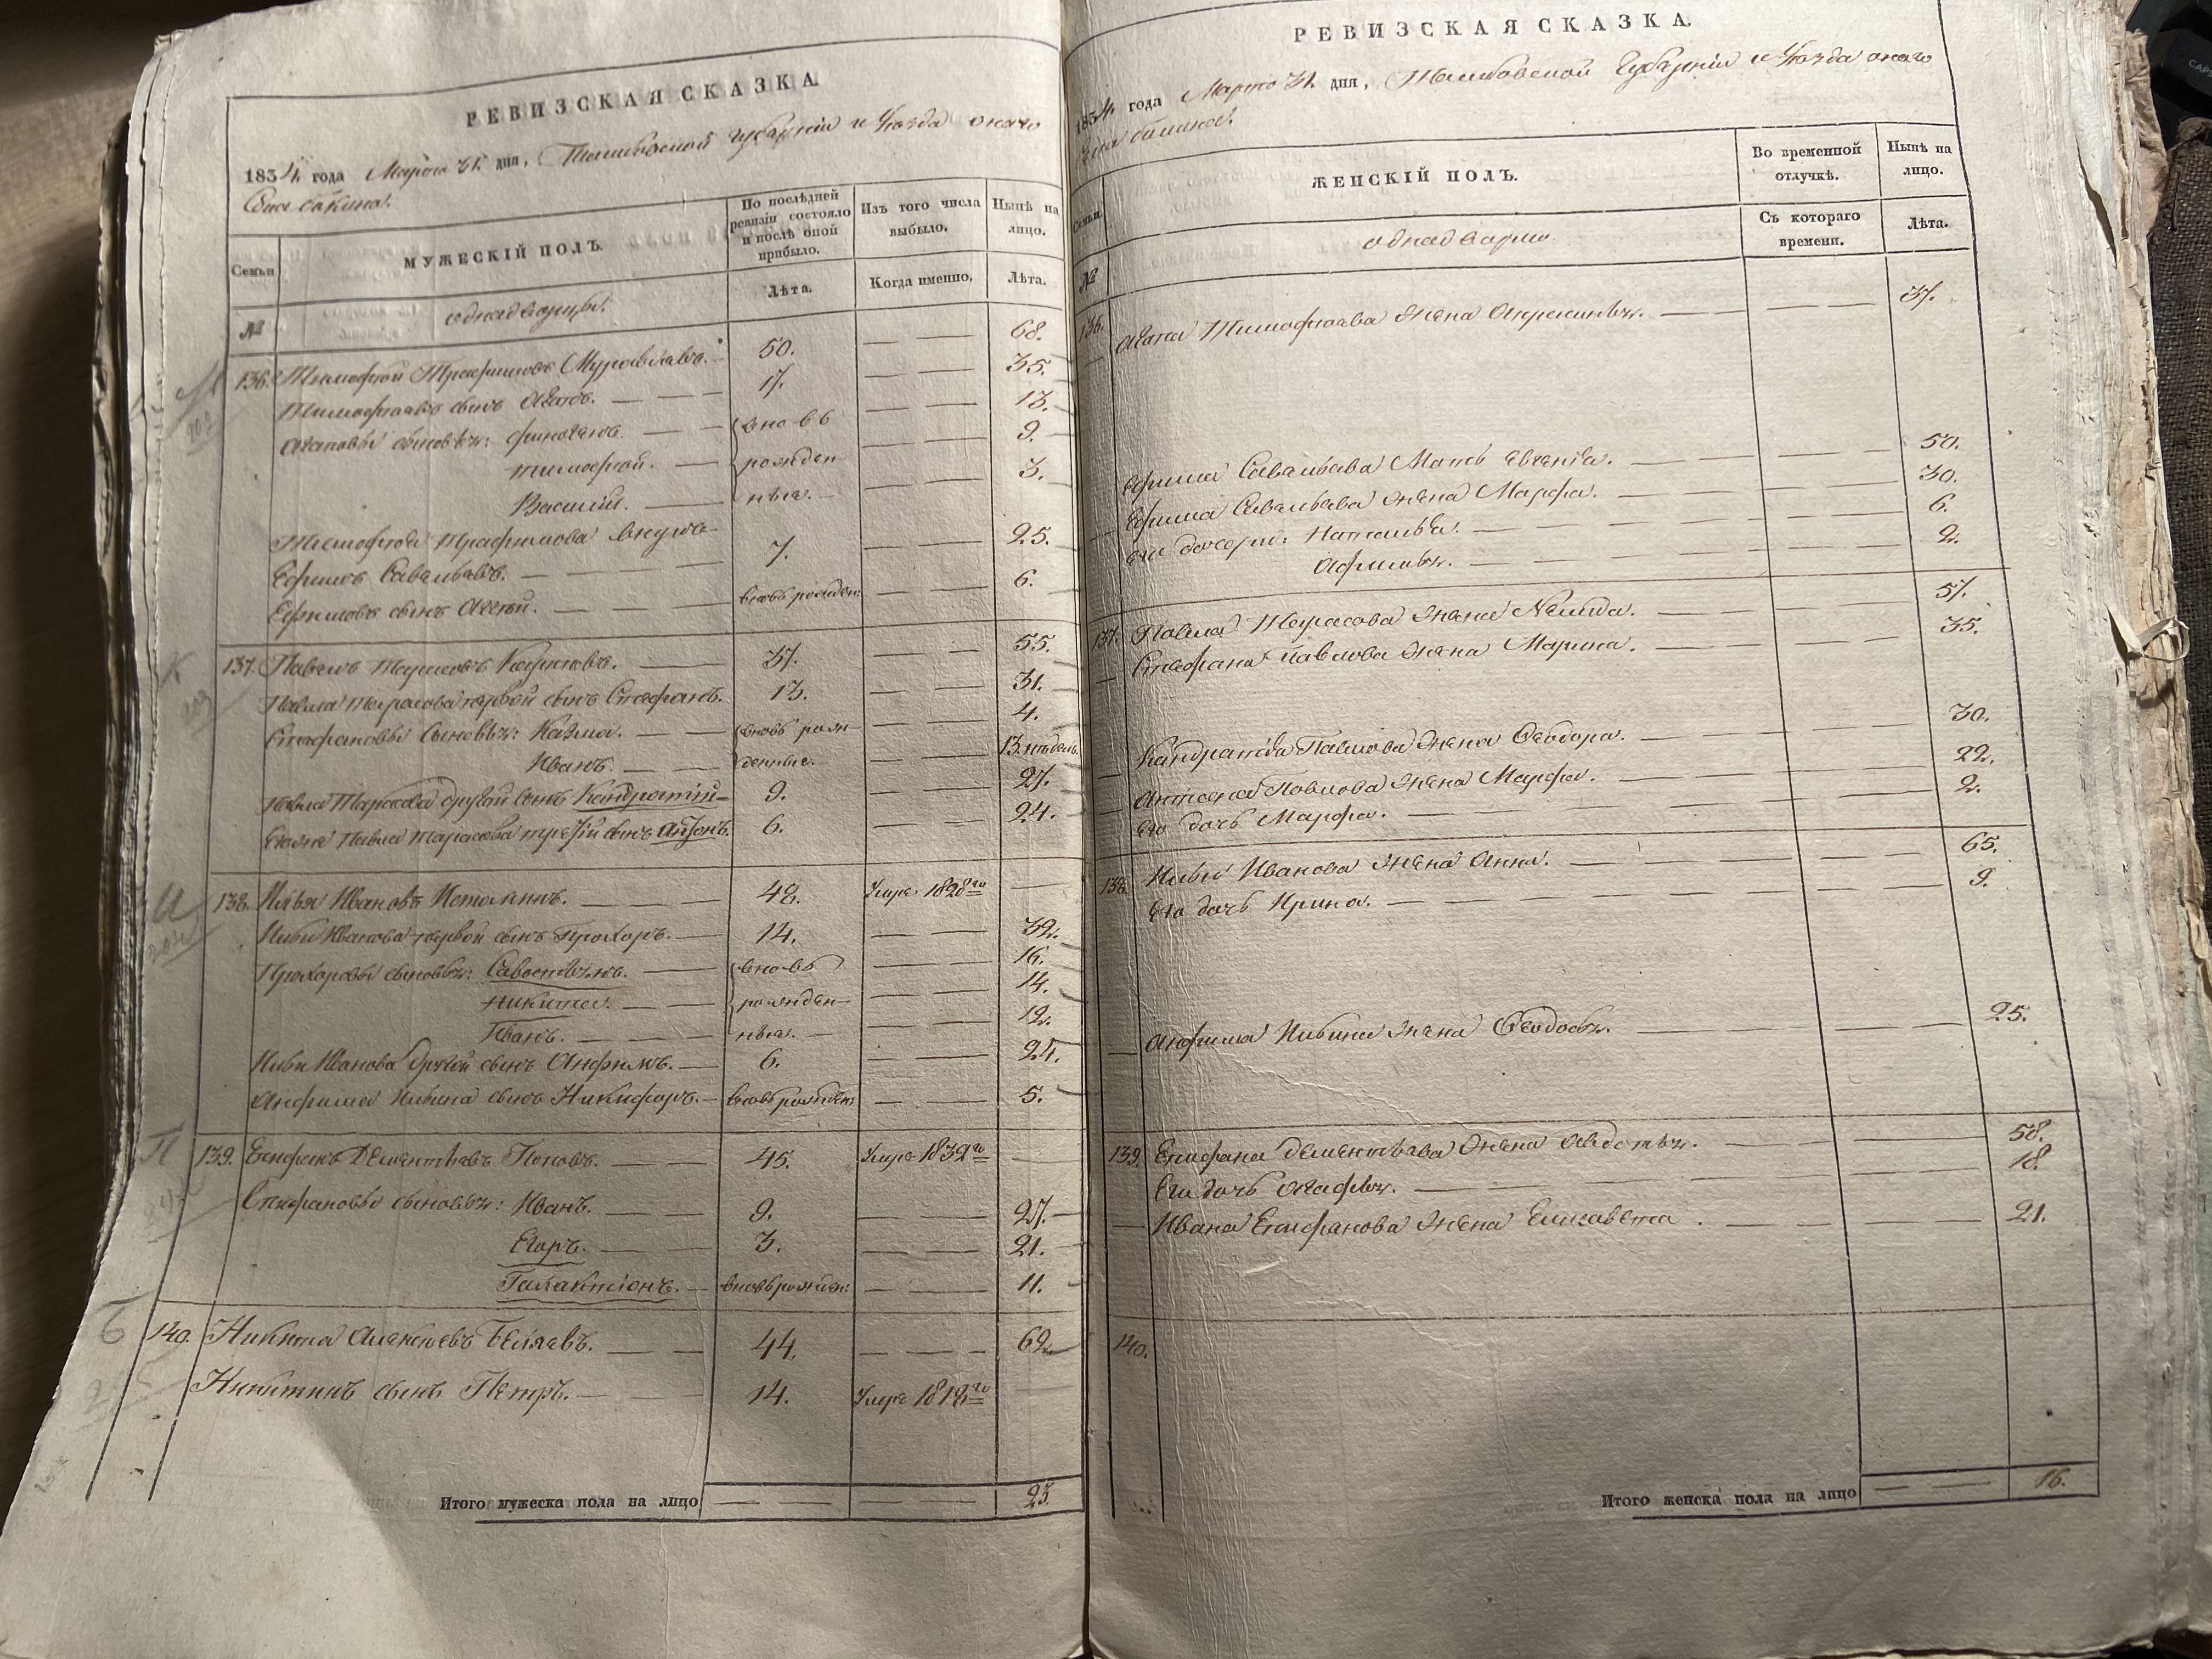 РЕВИЗСКАЯ СКАЗКА
1834 года Марта 31. дня, Тамбовской губернии и Уезда онаго
Села
Семьи
МУЖЕСКІЙ ПОЛЪ.
По послѣдней ревизіи состояло и послѣ оной прибыло.
Изъ того числа выбыло.
Нынѣ на лицо.
№
однодворцы.
Лѣта.
Когда именно.
Лѣта.
136. Тимофей Трафимовъ 50. — — 68.
Тимофеевъ сынъ Агапъ. — — 17. — — 35.
Агаповы сыновья: — — вновь — — 13.
Тимофей. — рожден — — 9.
Василий. — ныя. — — 3.
Тимофея Трафимова внукъ
Ефимъ Савельевъ. — — 7. — — 25.
Ефимовъ сынъ — — вновь рожден: — — 6.
137. Павелъ Тарасовъ — 37. — — 55.
Павла Тарасова первой сынъ Стефанъ. 13. — — 31.
Стефановы сыновья: Казма. — — вновь рож — — 4.
Иванъ. — — денные. — — 13. недель
Павла Тарасова другой сынъ Кондратій — 9. — — 27.
Егоже Павла Тарасова третій сынъ Антонъ. 6. — — 24.
138. Илья Ивановъ — — 48. Умре 1828го —
Ильи Иванова первой сынъ Прохоръ. — 14. — — 32.
Прохоровы сыновья: Савостьянъ. — — вновь — — 16.
Никита. — — рожден — — 14.
Иванъ. — — ныя. — — 12.
Ильи Иванова другой сынъ Анфимъ. — 6. — — 24.
Анфима Ильина сынъ Никифоръ. — вновь рожден: — — 5.
139. Епифанъ Дементьевъ Поповъ. — — 45. Умре 1832го —
Епифановы сыновья: Иванъ. — — 9. — — 27.
Егоръ. — — 3. — — 21.
Галактіонъ. — вновь рожден: — — 11.
140. Никита Алексеевъ Беляевъ. — — 44. — — 62.
Никитинъ сынъ Петръ. — — 14. Умре 1818го
Итого мужеска пола на лицо — — 23.
РЕВИЗСКАЯ СКАЗКА.
1834 года Марта 31. дня, Тамбовской Губерніи и Уезда онаго
Села
Семьи
ЖЕНСКІЙ ПОЛЪ.
Во временной отлучкѣ.
Нынѣ на лицо.
№
Съ котораго времени.
Лѣта.
136. Агапа Тимофеева жена — — 37.
Ефима Савельева Мать Евгенія. — — 50.
Ефима Савельева жена Марфа. — — 30.
его дочери: Наталья. — — 6.
— — 2.
137. Павла Тарасова жена — — 57.
Стефана Павлова жена Марина. — — 35.
Кандратья Павлова жена Феодора. — — 30.
Антона Павлова жена Марфа. — — 22.
Его дочь Марфа. — — 2.
138. Ильи Иванова жена Анна. — — 65.
Его дочь Ирина. — — 9.
Анфима Ильина жена Феодосья. — — 25.
139. Епифана Дементьева жена Авдотья. — — 58.
Его дочь Агафья. — — 18.
Ивана Епифанова жена Елисавета. — — 21.
140.
Итого женска пола на лицо — — 16.